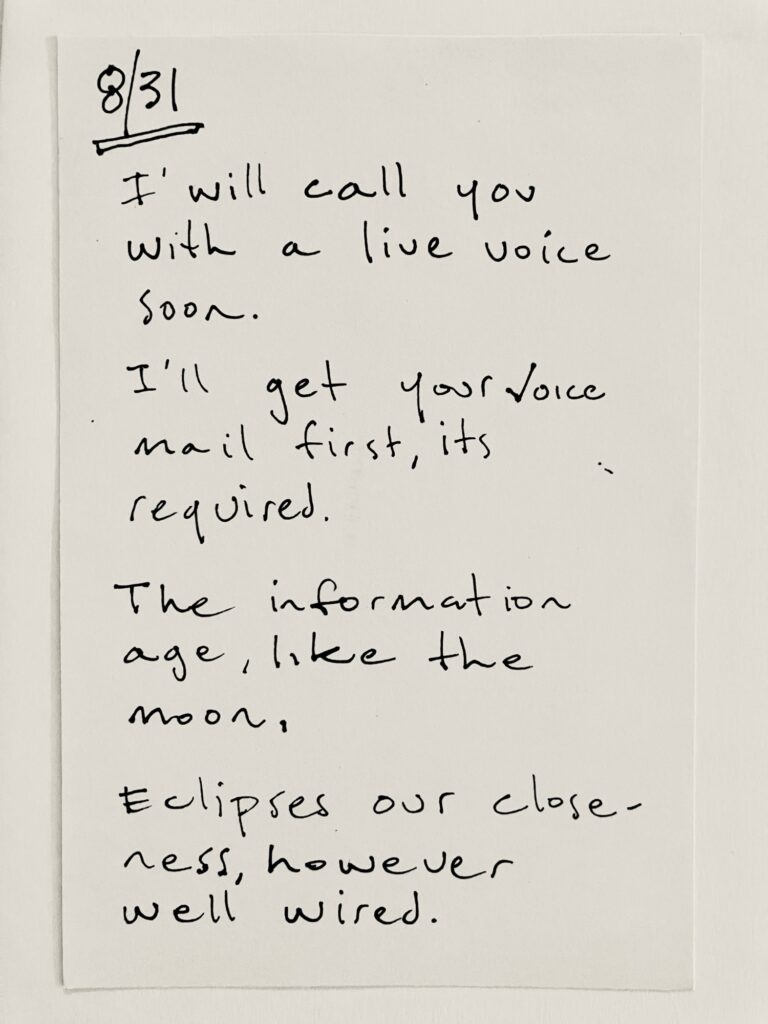 8/31
I' will call you
with a live voice
soon.
I'll get your voice
mail first, its
required.
The information
age, like the
moon,
Eclipses our close-
ness, however
well wired.